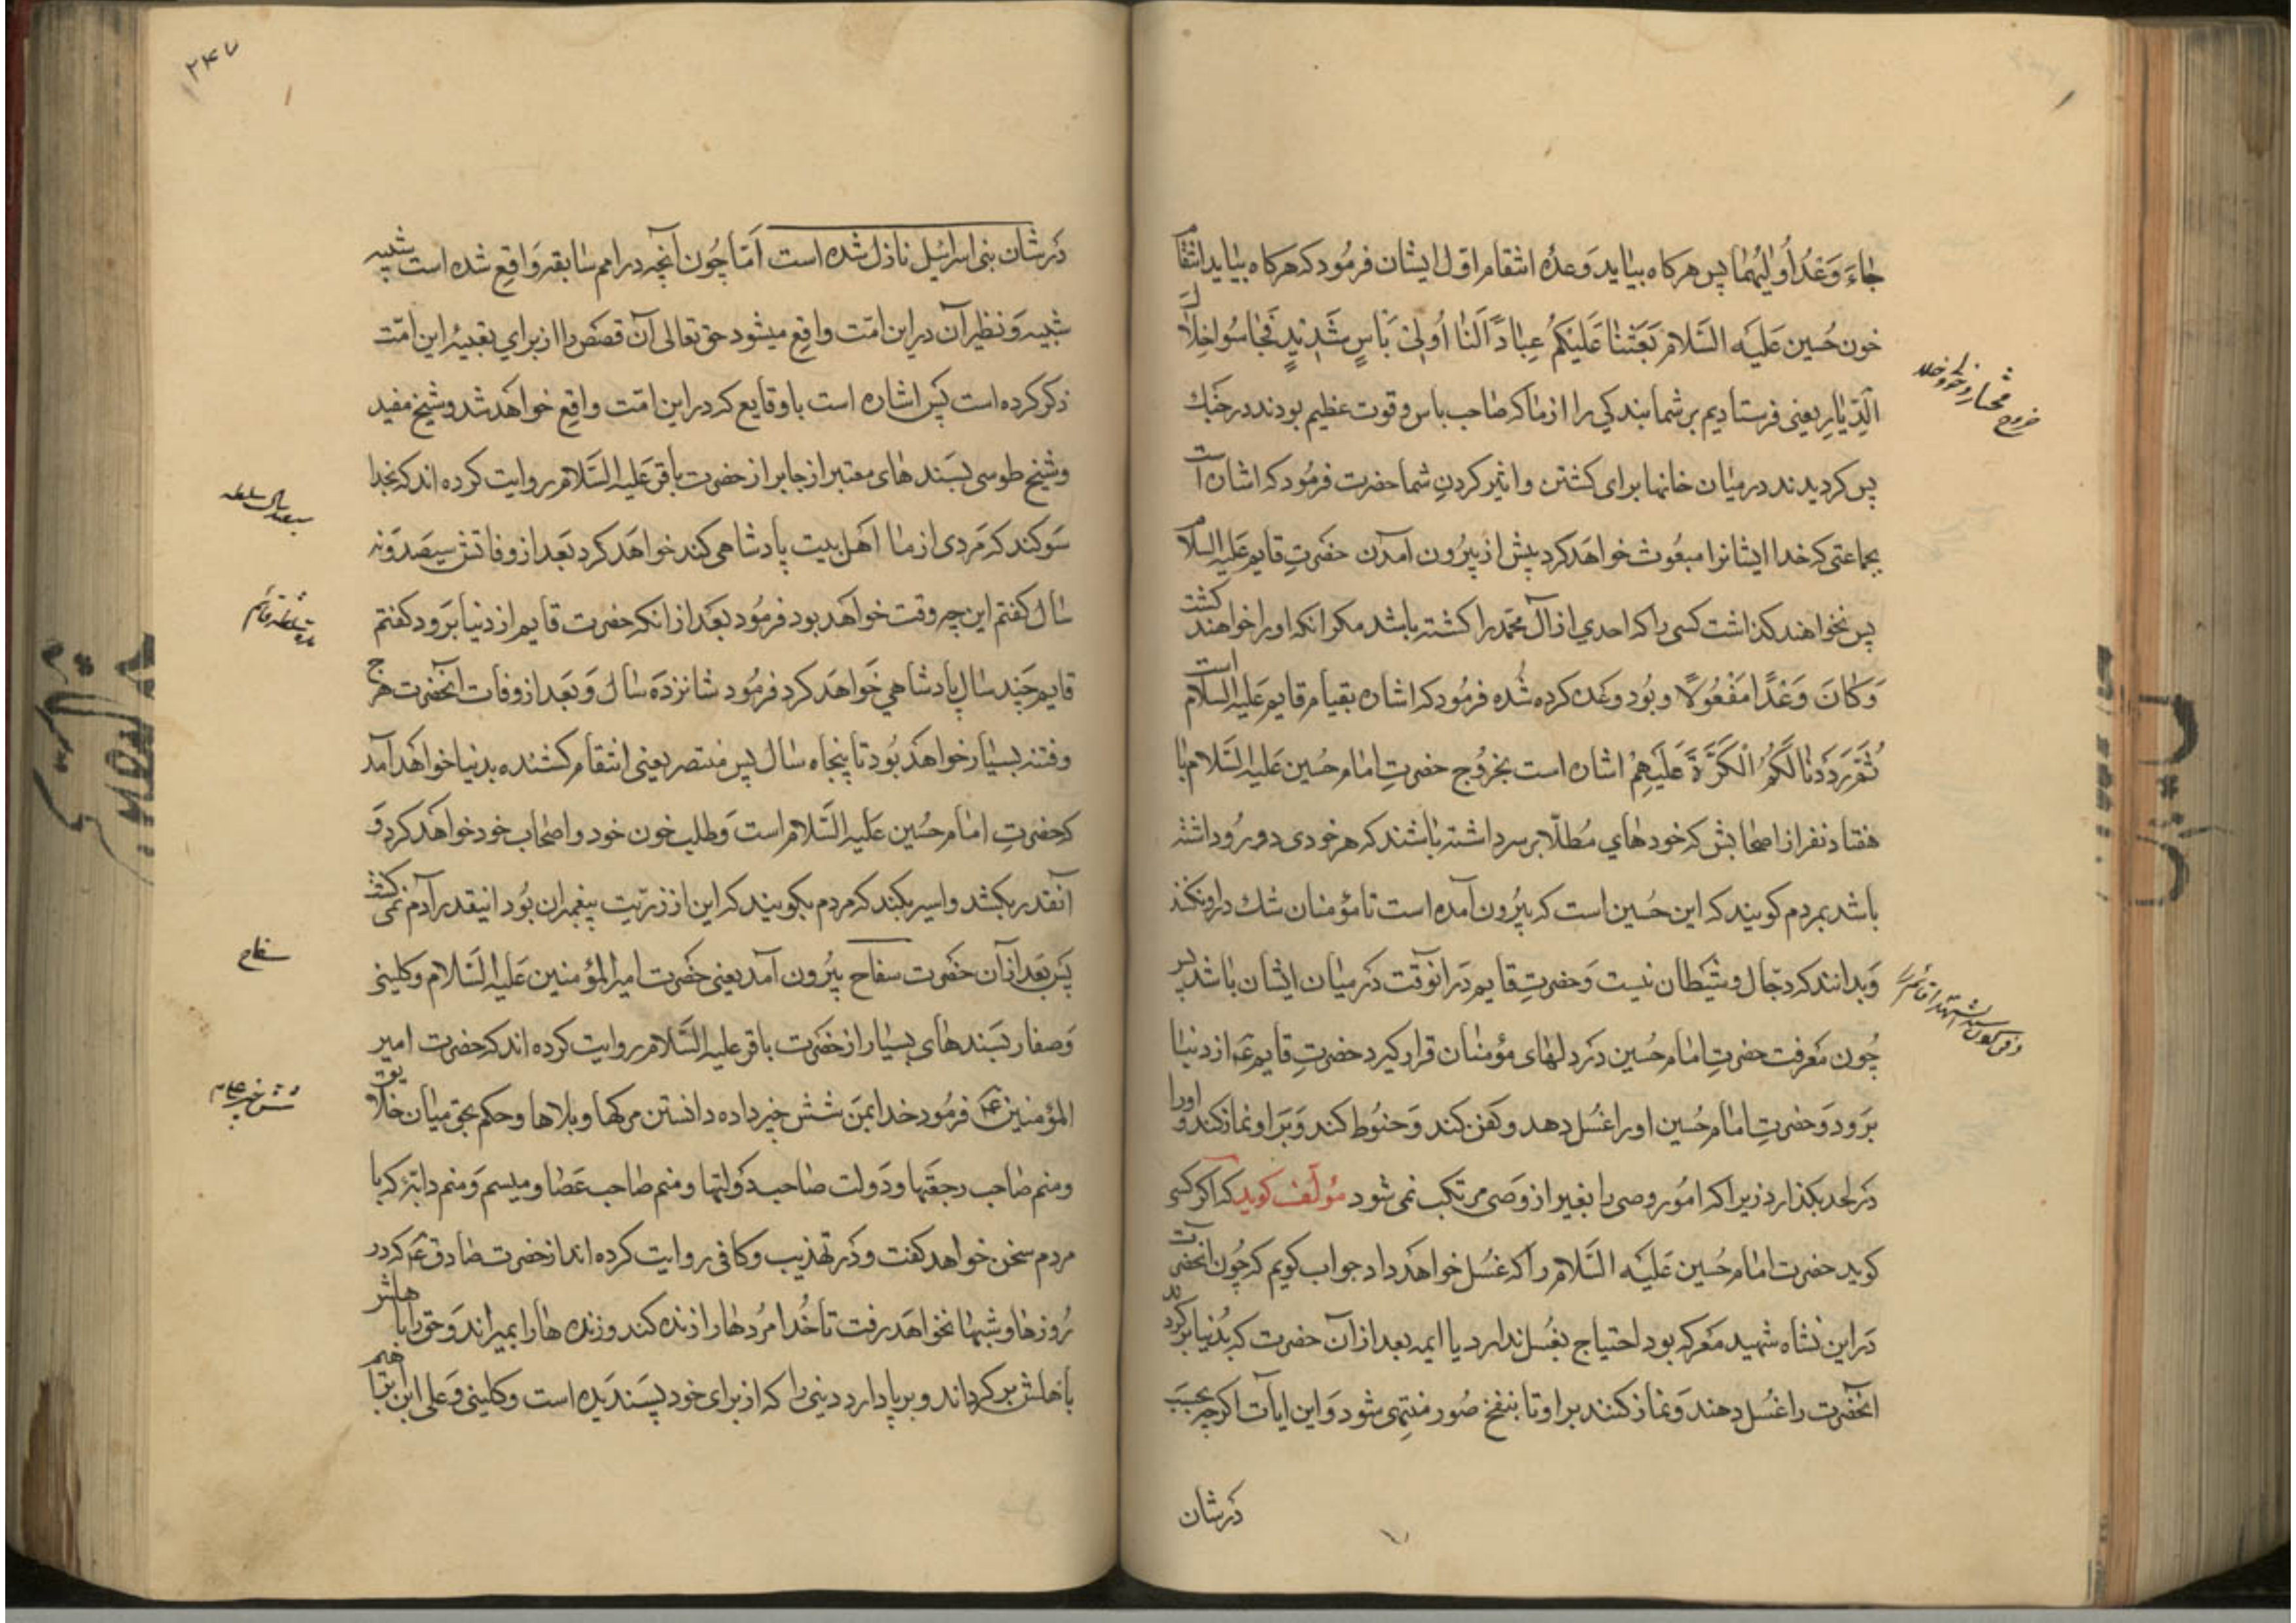 جَاءَ وَعْدُ أُولٰیهُمَا پس هرکاه بیاید وَعدۀ انتقام اوّل ایشان فرمُود که هرکاه بیاید انتقام
خون حُسین عَلَیه السَّلام بَعَثْنَا عَلَیْکُمْ عِبَادًا لَنَا أُولِی بَأسٍ شَدِیدٍ فَجَاسُوا خِلَالَ
الدِّیَارِ یعنی فرستادیم بر شما بندکی را از ما که صاحب باس و قوت عظیم بودند در جنك
پس کردیدند در میان خانها برای کشتن و اثیر کردن شما حضرت فرمُود که اشاره است
بجماعتی که خدا ایشانرا مبعُوث خواهد کرد پیش از بیرُون آمدن حضرتِ قایم علیه السلام
پس نخواهند کذاشت کسی را که احدی از آل محمّد را کشته باشد مکر انکه او را خواهند کشت
وَکَانَ وَعْدًا مَفْعُولًا و بُود وعده کرده شُده فرمُود که اشاره بقیام قایم علیه السلام است
ثُمَّ رَدَدْنَا لَکُمُ الْکَرَّةَ عَلَیْهِمْ اشاره است بخرُوج حضرتِ امام حُسین عَلیه السَّلام با
هفتاد نفر از اصحابش که خودهای مُطلّا بر سر داشته باشند که هر خودی دو رُو داشته
باشد بمردم کویند که این حُسین است که بیرُون آمده است تا مؤمنان شك در او نکنند
وَبدانند که دجّال و شَیطان نیست وَحضرتِ قایم دَر انوقت دَر میان ایشان باشد پس
چُون مَعرفت حضرتِ امام حسین دَر دلهای مؤمنان قرار کیرد حضرتِ قایم عَم از دنیا
بَرَود وَحضرتِ امام حُسین او را غسُل دهد و کفن کند وَحنُوط کند وَبَر او نماز کند و او را
دَر لحد بکذارد زیرا که امُور وصی را بغیر از وَصی مرتکب نمی شود مُؤلّف کوید که اکر کسی
کوید حضرت امام حُسین عَلَیه السَّلام را که غسُل خواهَد داد جواب کویم که چُون انحضرت
دَر این نشاه شهید مَعرکه بود احتیاج بغُسل ندارد یا ایمه بعد از آن حضرت که بدُنیا برکردند
انحَضرت را غسُل دهند وَنماز کنند بر او تا بنفخ صُور منتِهی شود وَاین ایات اکرچه بحسَب
دَرشان
خروج مختار
دَرشان بنی اسرائیل نازل شده است اَمّا چُون آنچه در امم سَابقه وَاقع شده است شبیه
شبیه وَ نظیر آن در این امّت واقع میشود حق تعالی آن قصَص را از برای تعبیۀ این امّت
ذکر کرده است پَس اشاره است باوقایع که در این امّت واقع خواهَد شد و شیخ مفید
و شیخ طوسی بسَندهای معتبر از جابر از حضرت باقر عَلیه السَّلام روایت کرده اند که بخدا
سَوکند که مَردی از ما اهل بیت پادشاهی کند خواهَد کرد بَعد از وفاتش سیصَد وَنه
سَال کفتم این چه وقت خواهَد بود فرمُود بَعد از انکه حضرت قایم از دنیا بَرود کفتم
قایم چَند سَال پادشاهی خَواهَد کرد فرمُود شانزدَه سَال وَ بَعد از وفات آنحضرت هرج
و فتنه بسیار خواهَد بُود تا پنجاه سَال پس منتصر یعنی انتقام کشنده بدنیا خواهَد آمد
که حضرتِ امام حُسین عَلیه السَّلام است وَ طلب خون خود و اصحاب خود خواهَد کرد وَ
آنقدر بکشد و اسیر بکند که مردم بکویند که این از ذریّت پیغمبران بُود اینقدر آدم نمی کشت
پَس بَعد از آن حضرت سفاح بیرُون آمد یعنی حضرت امیرالمؤمنین عَلیه السَّلام و کلینی
وَصفار بسَندهای بسیار از حضرت باقر علیه السَّلام روایت کرده اند که حضرت امیر
المؤمنین عم فرمُود خدا بمَن شش چیز داده دانستن مرکها و بلاها و حکم بحق میان خلایق
و منم صاحب رجعَتها وَدَولت صاحب دَولتها و منم صاحب عَصا و میسم وَمنم دابّه که با
مردم سخن خواهد کفت و دَر تهذیب و کافی روایت کرده اند از حضرت صادق عم که در
رُوزها و شبها نخواهَد رفت تا خُدا مرُدها را زنده کند و زنده ها را بمیراند وَحق را باهلش
باهلش برکرداند و برپا دارد دینی را که از برای خود پسَندیده است و کلینی وَعلی ابن ابراهیم
سفاح
۲۴۷